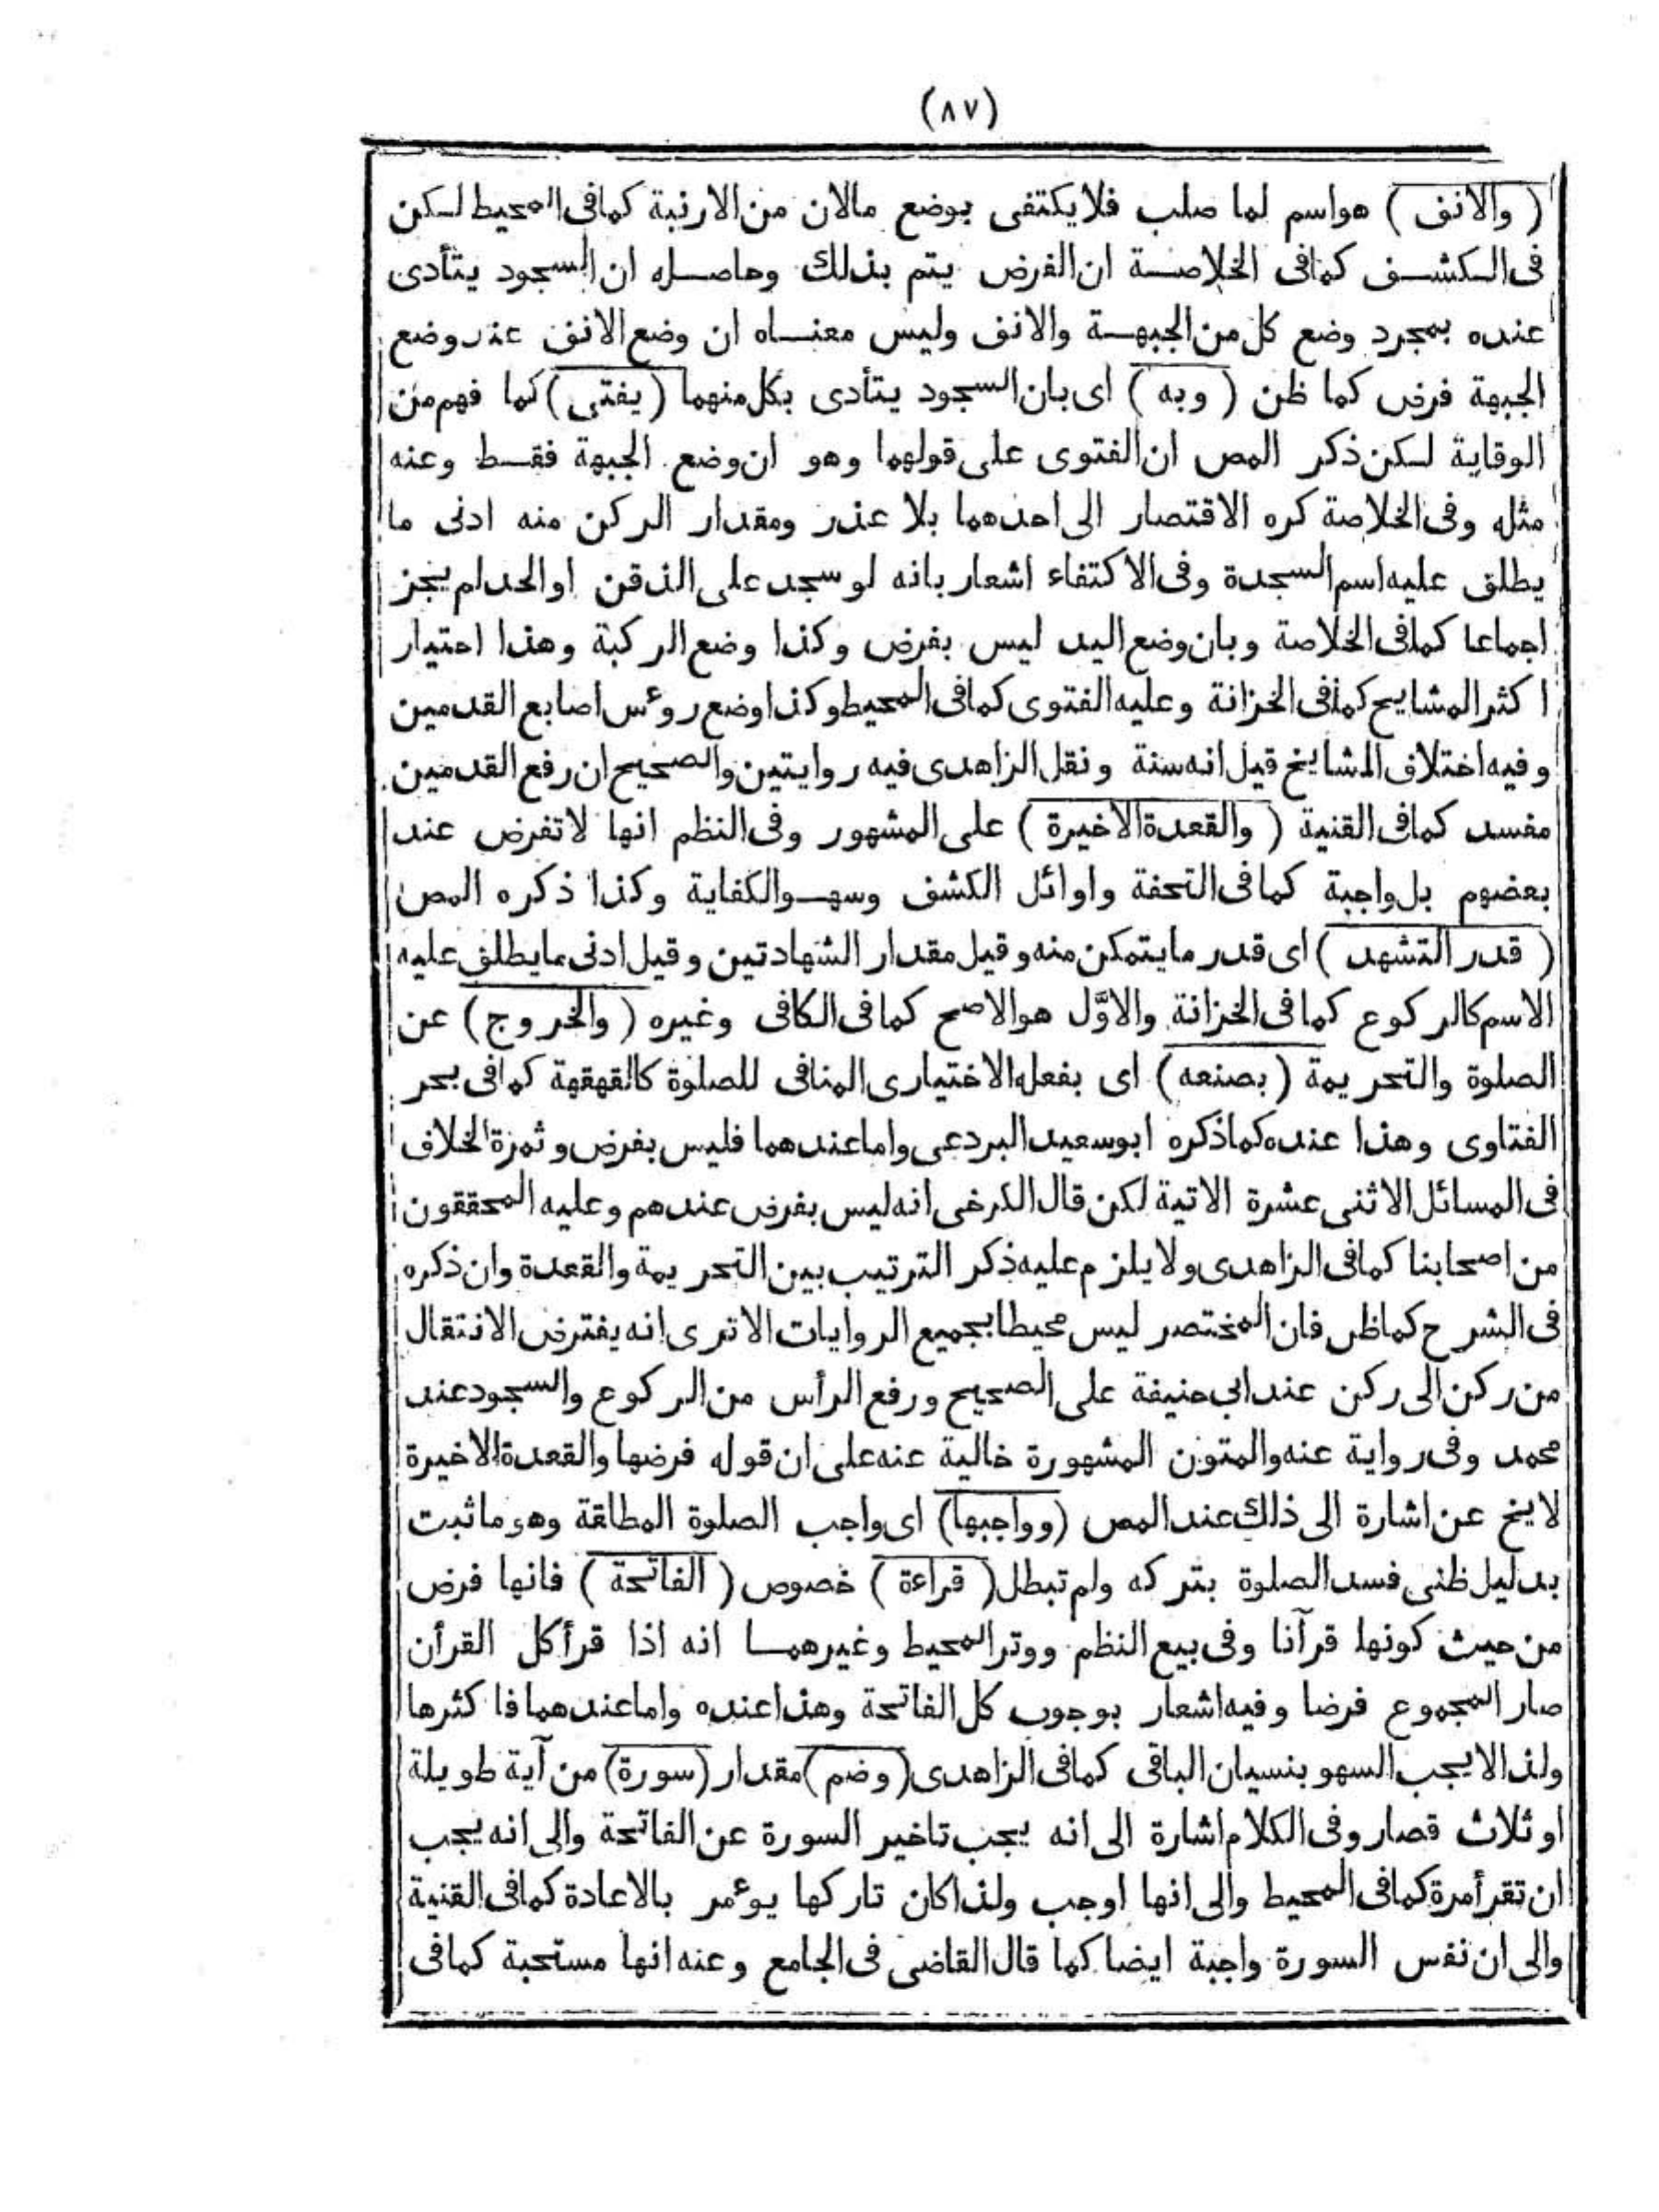 (٨٧)
( والانف ) هواسم لما صلب فلايكتفى بوضع مالان من الارنبة كمافى المحيط لكن
فى الكشف كمافى الخلاصة ان الفرض يتم بذلك وحاصله ان السجود يتأدى
عنده بمجرد وضع كل من الجبهة والانف وليس معناه ان وضع الانف عذر وضع
الجبهة فرض كما ظن ( وبه ) اى بان السجود يتأدى بكل منهما ( يفتى ) كما فهم من
الوقاية لكن ذكر المص ان الفتوى على قولهما وهو ان وضع الجبهة فقط وعنه
مثله وفى الخلاصة كره الاقتصار الى احدهما بلا عذر ومقدار الركن منه ادنى ما
يطلق عليه اسم السجدة وفى الاكتفاء اشعار بانه لو سجد على الذقن او الخد لم يجز
اجماعا كمافى الخلاصة وبان وضع اليد ليس بفرض وكذا وضع الركبة وهذا اختيار
اكثر المشايخ كمافى الخزانة وعليه الفتوى كمافى المحيط وكذا وضع روٴس اصابع القدمين
وفيه اختلاف المشايخ قيل انه سنة ونقل الزاهدى فيه روايتين والصحيح ان رفع القدمين
مفسد كمافى القنية ( والقعدة الاخيرة ) على المشهور وفى النظم انها لاتفرض عند
بعضهم بل واجبة كمافى التحفة واوائل الكشف وسهو الكفاية وكذا ذكره المص
( قدر التشهد ) اى قدر مايتمكن منه وقيل مقدار الشهادتين وقيل ادنى مايطلق عليه
الاسم كالركوع كمافى الخزانة والاوّل هو الاصح كمافى الكافى وغيره ( والخروج ) عن
الصلوة والتحريمة ( بصنعه ) اى بفعله الاختيارى المنافى للصلوة كالقهقهة كمافى بحر
الفتاوى وهذا عنده كماذكره ابوسعيد البردعى واما عندهما فليس بفرض وثمرة الخلاف
فى المسائل الاثنى عشرة الاتية لكن قال الكرخى انه ليس بفرض عندهم وعليه المحققون
من اصحابنا كمافى الزاهدى ولايلزم عليه ذكر الترتيب بين التحريمة والقعدة وان ذكره
فى الشرح كماظن فان المختصر ليس محيطا بجميع الروايات الاترى انه يفترض الانتقال
من ركن الى ركن عند ابى حنيفة على الصحيح ورفع الرأس من الركوع والسجود عند
محمد وفى رواية عنه والمتون المشهورة خالية عنه على ان قوله فرضها والقعدة الاخيرة
لايخ عن اشارة الى ذلك عند المص (وواجبها) اى واجب الصلوة المطلقة وهو ماثبت
بدليل ظنى فسد الصلوة بتركه ولم تبطل ( قراءة ) خصوص ( الفاتحة ) فانها فرض
من حيث كونها قرآنا وفى بيع النظم ووتر المحيط وغيرهما انه اذا قرأ كل القرأن
صار المجموع فرضا وفيه اشعار بوجوب كل الفاتحة وهذا عنده واما عندهما فاكثرها
ولذا لايجب السهو بنسيان الباقى كمافى الزاهدى ( وضم ) مقدار (سورة) من آية طويلة
او ثلاث قصار وفى الكلام اشارة الى انه يجب تاخير السورة عن الفاتحة والى انه يجب
ان تقرأ مرة كمافى المحيط والى انها اوجب ولذا كان تاركها يوٴمر بالاعادة كمافى القنية
والى ان نفس السورة واجبة ايضا كما قال القاضى فى الجامع وعنه انها مستحبة كمافى